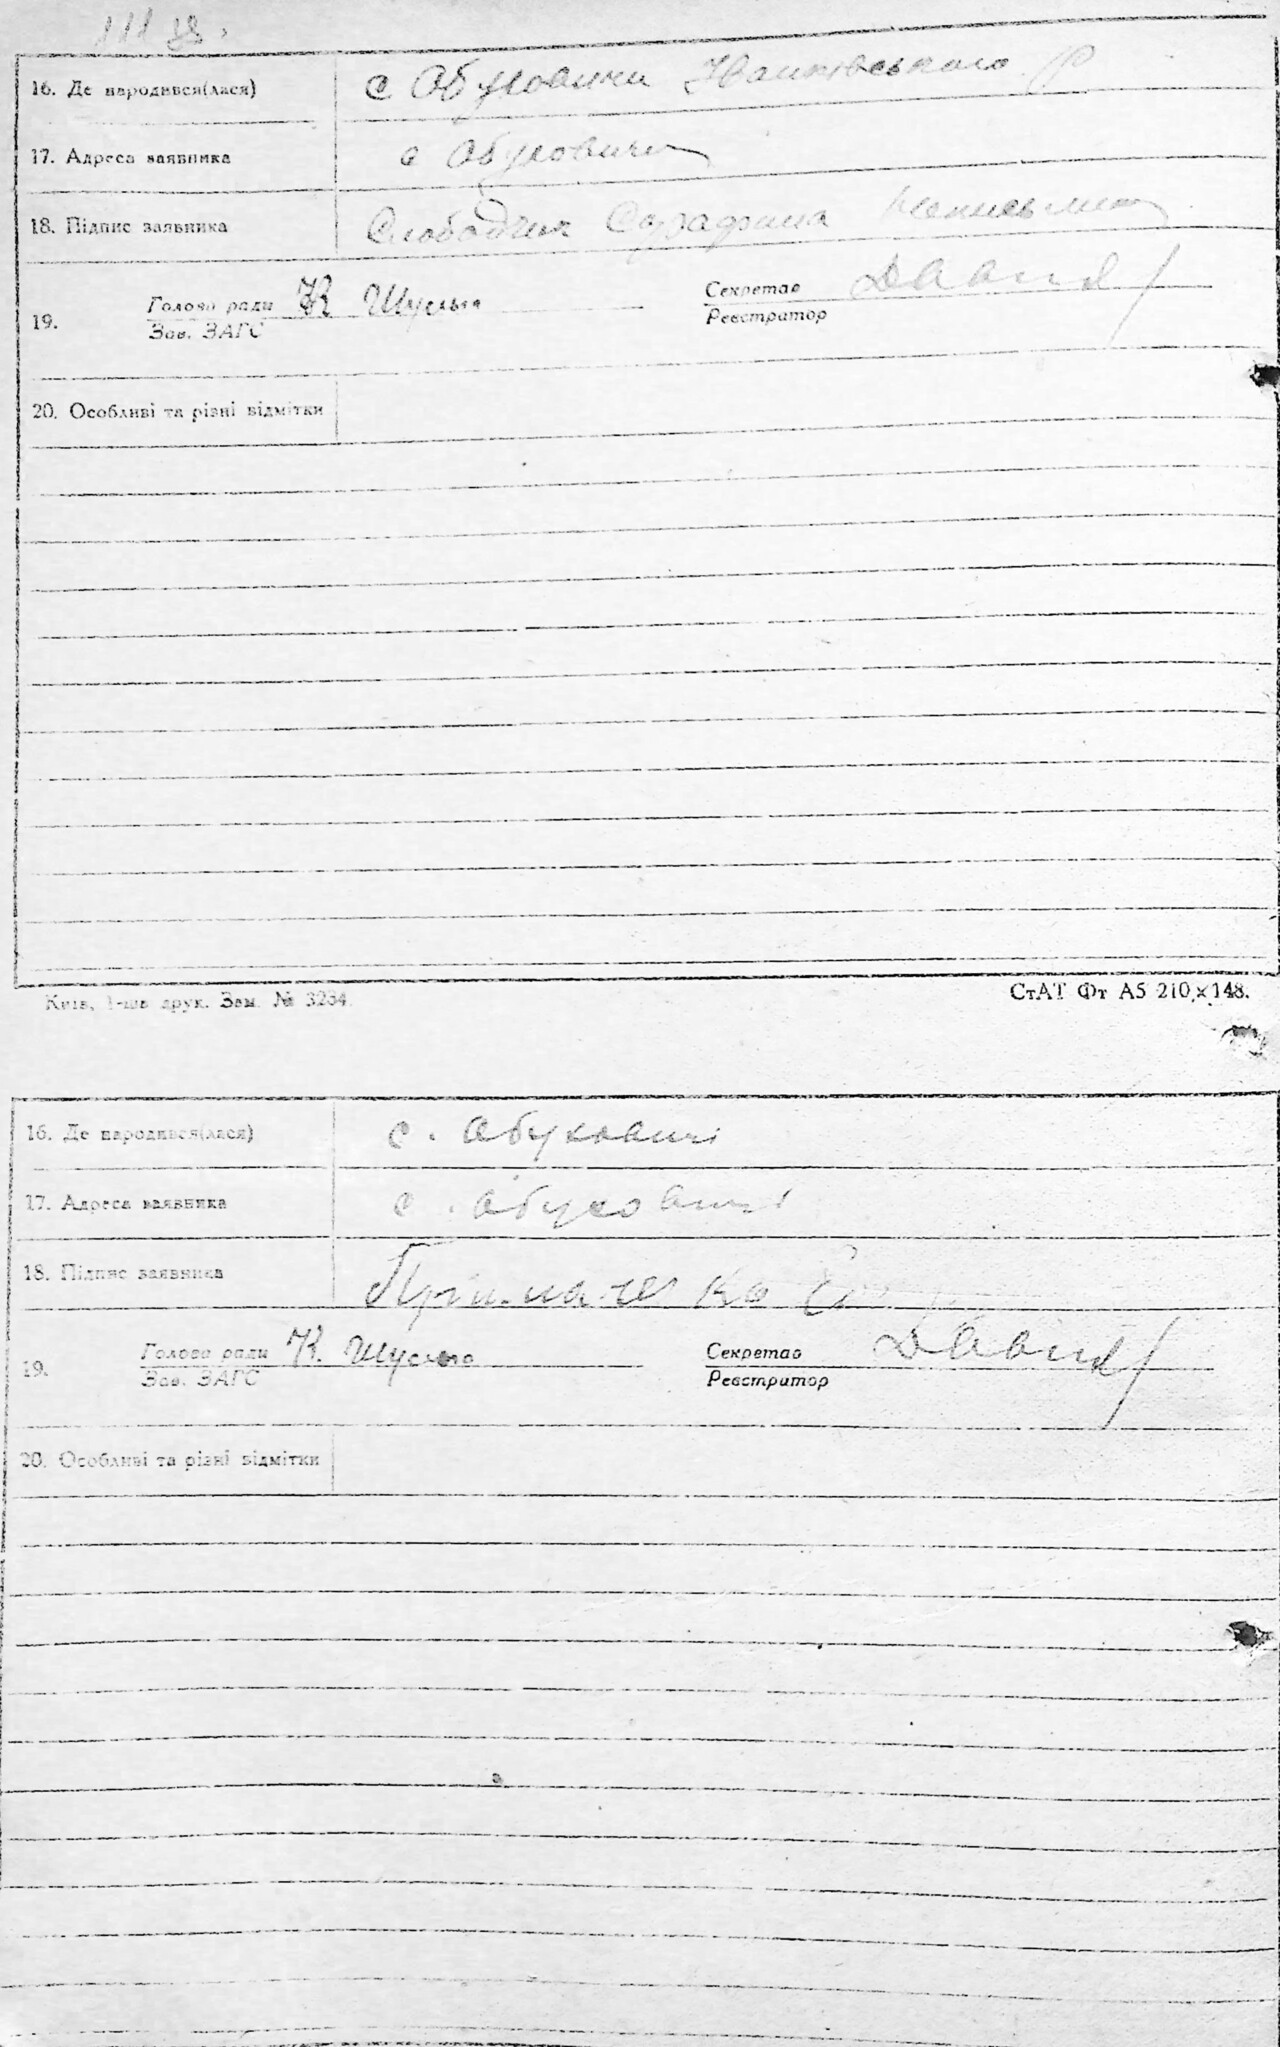 16. Де народився(лася) с Обуховичи Іванківського Р
17. Адреса заявника с Обуховичи
18. Підпис заявника Слободчик Серафима
19. Голова ради К Шульга Секретар
Зав. ЗАГС Реєстратор
20. Особливі та різні відмітки
Київ, 1-ша друк. Зам. № 3234.
СтАТ Фт А5 210×148.
16. Де народився(лася) с. Обуховичі
17. Адреса заявника с. Обуховичі
18. Підпис заявника
19. Голова ради К. Шульга Секретар
Зав. ЗАГС Реєстратор
20. Особливі та різні відмітки